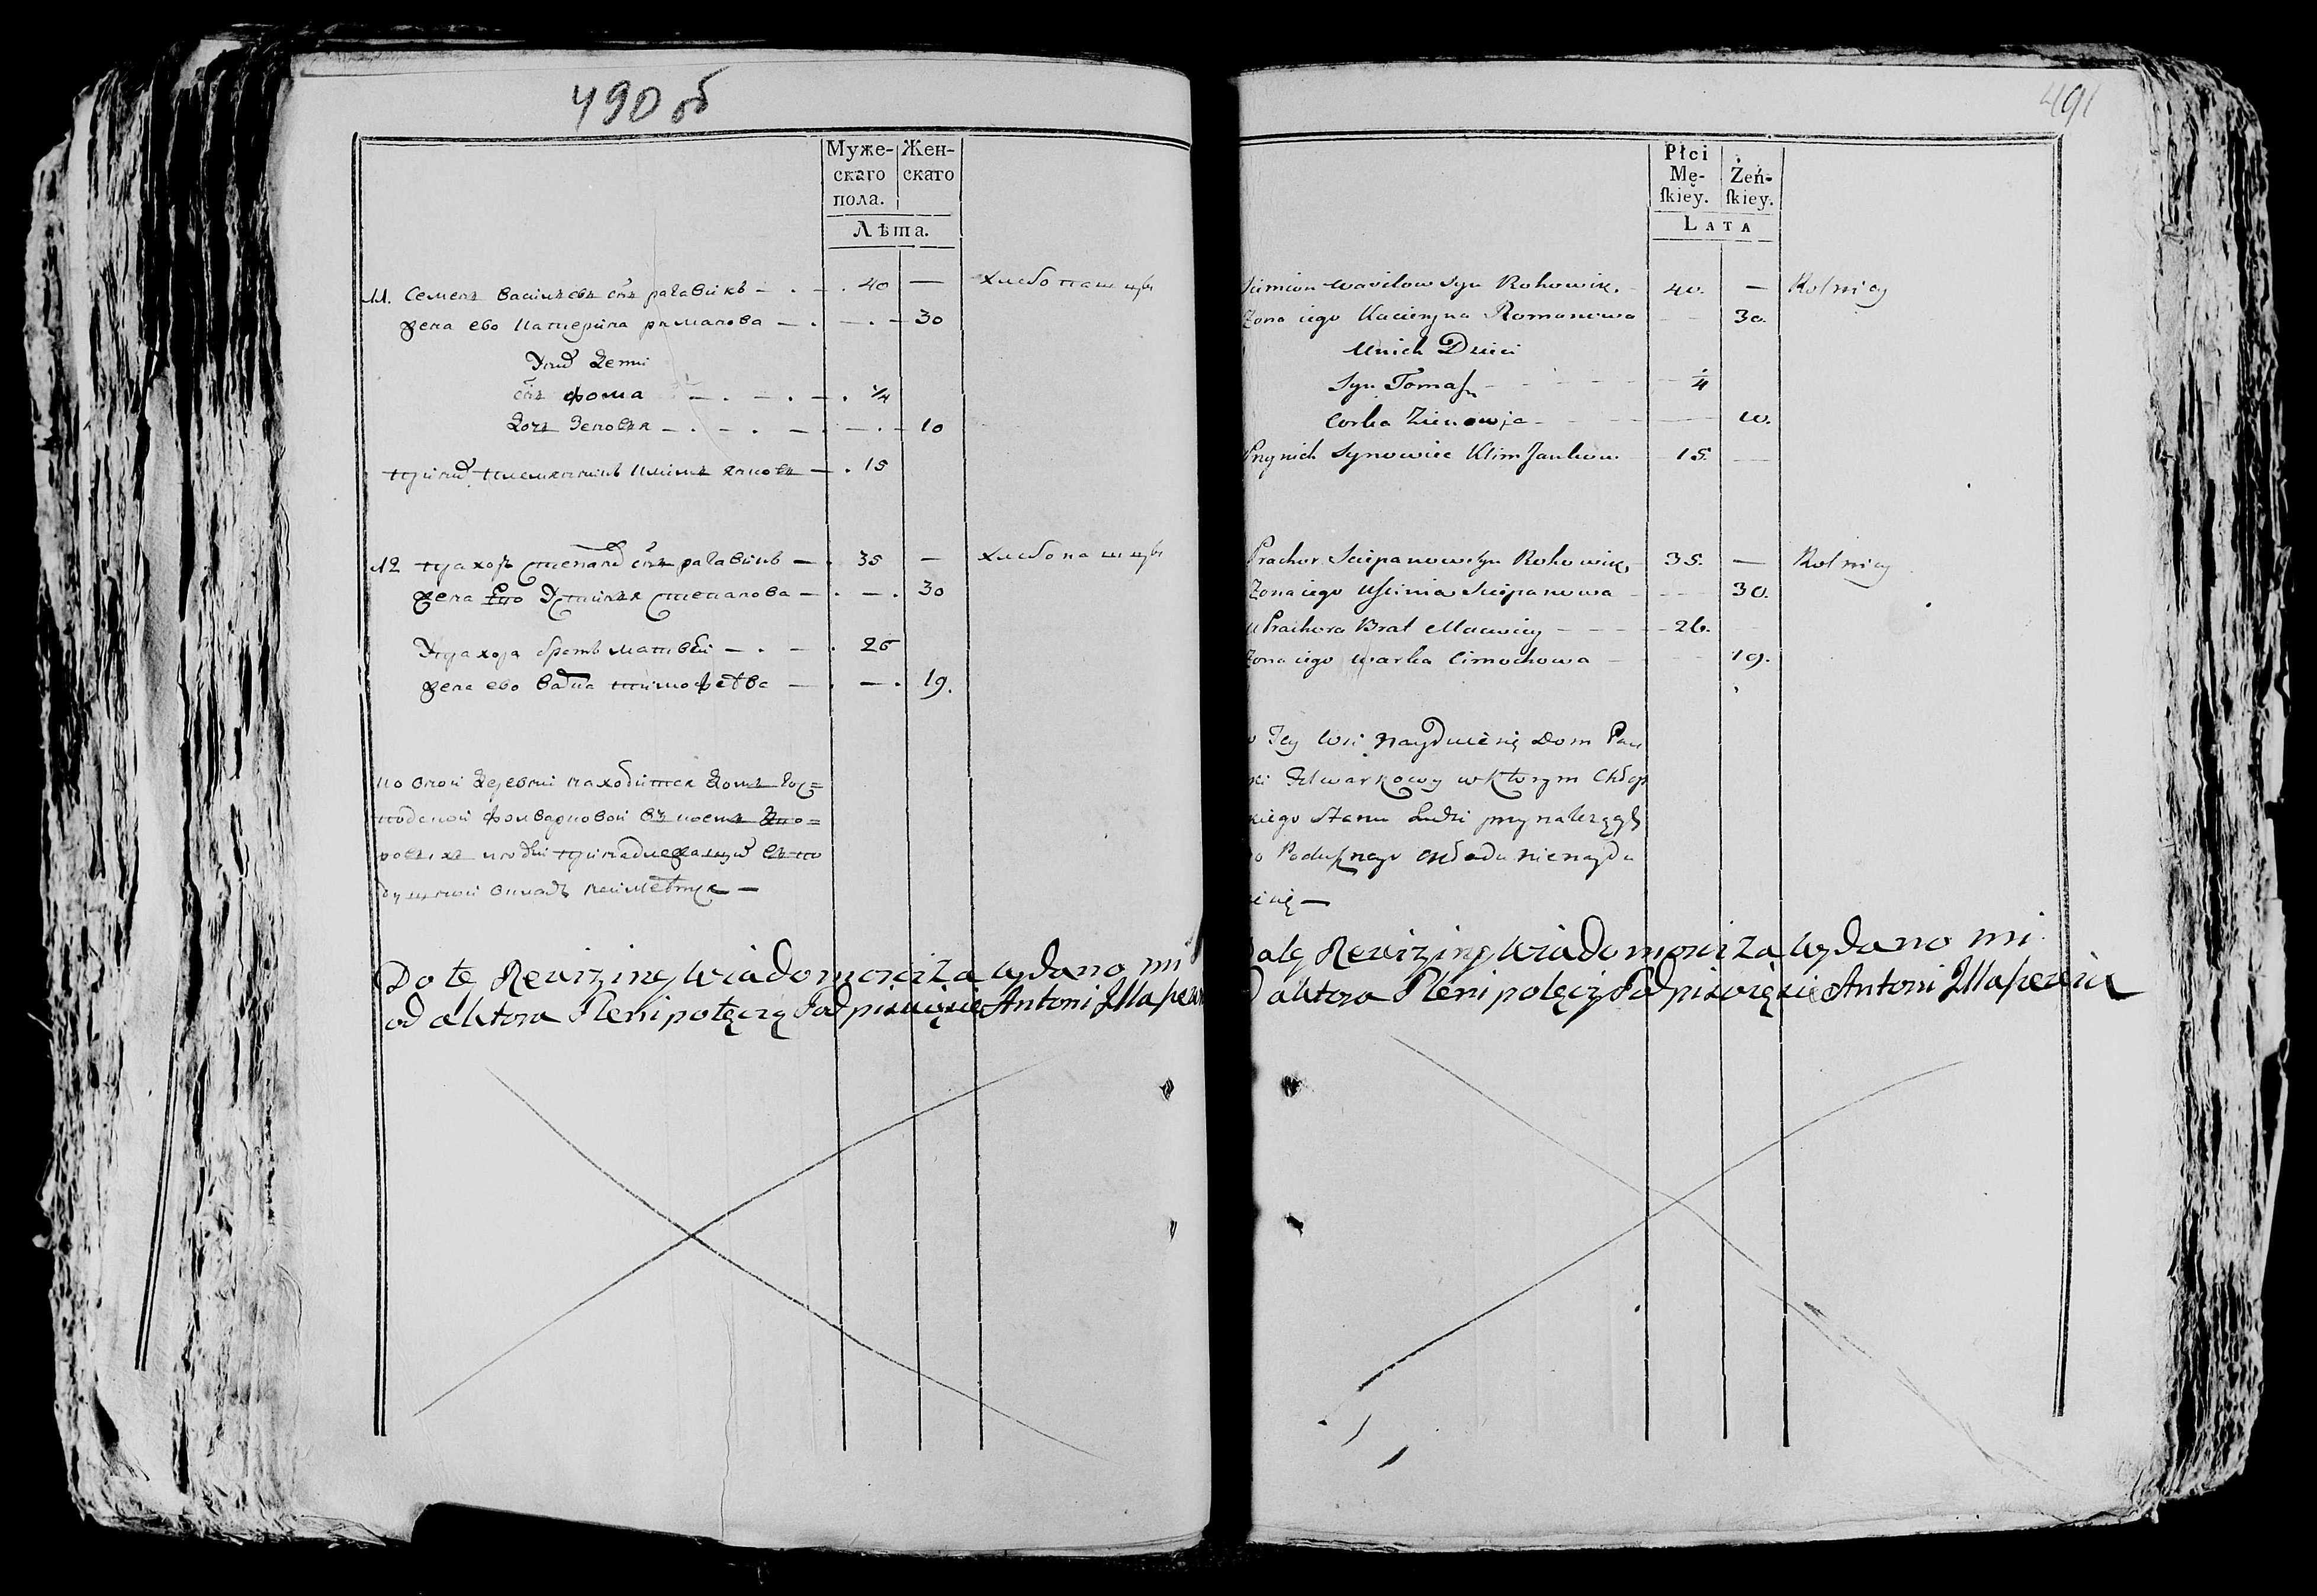 490 об
Муже-
скаго
пола.
Жен-
скаго
Лѣта.
11. Семенъ Василевъ снъ рагавикъ — 40 — хлебопашцы
жена ево Катерина раманова — 30
У них дети
снъ фома — 1/4
дочъ Зеновъя — 10
при них племянникъ климъ янковъ — 15
12 прахоръ степанов снъ рагавикъ — 35 — хлебопашцы
жена Его Устинъя степанова — 30
У прахора братъ матвеи — 26
жена ево тимофеева — 19.
во онои деревни находится домъ гос=
подскои фолварковои въ коемъ
людеи принадлежащих въ по
душнои окладъ неимеетца —
Do tę Rewizyinej wiadomości za wydano mi
od aktora Plenipotęcyą Podpisuię się Antoni
491
Płci
Mę-
ſkiey.
Żeń-
ſkiey.
LATA
Siemion Wasilow Syn Rohowik. 40. — Rolnicy
Zona iego Kacieryna Romanowa 30.
U nich Dzieci
Syn Tomaſz 1/4
Corka Zienowja 10.
Przy nich Synowiec Klim Jankow 15. —
Prachor Sciepanow Syn Rohowik 35. — Rolnicy
Zona iego Uſtinia Sciepanowa 30.
u Prachora Brat Maciwiey 26.
Zona iego Warka Cimochowa 19.
w Tey Wsi Nayduie się Dom Pań
ski Folwarkowy w ktorym Chłop
skiego Stanu Ludzi przynalezących
do Poduſznego Okładu nienaydu
ie się —
Do tę Rewizyinej wiadomości za wydano mi
od aktora Plenipotęcyą Podpisuię się Antoni